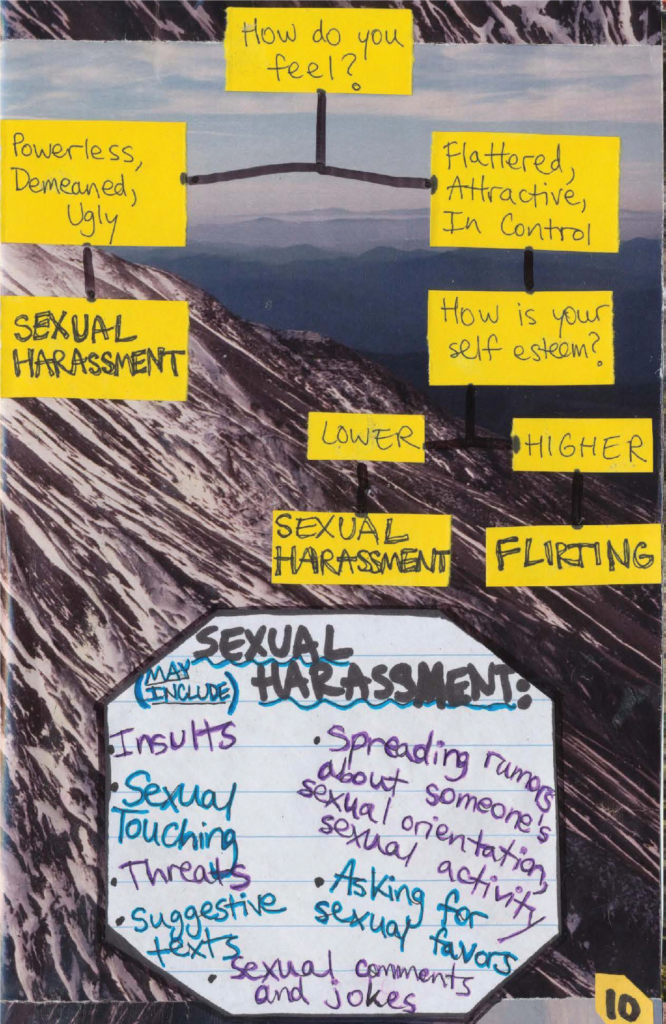 How do you
feel?
Powerless,
Demeaned,
Ugly
Flattered,
Attractive,
In Control
SEXUAL
HARASSMENT
How is your
self esteem?
LOWER
HIGHER
SEXUAL
HARASSMENT
FLIRTING
SEXUAL
(MAY
INCLUDE)
HARASSMENT:
• Insults
• Sexual
Touching
• Threats
• Suggestive
texts
• Spreading rumors
about someone's
sexual orientation,
sexual activity
• Asking for
sexual favors
• sexual comments
and jokes
10